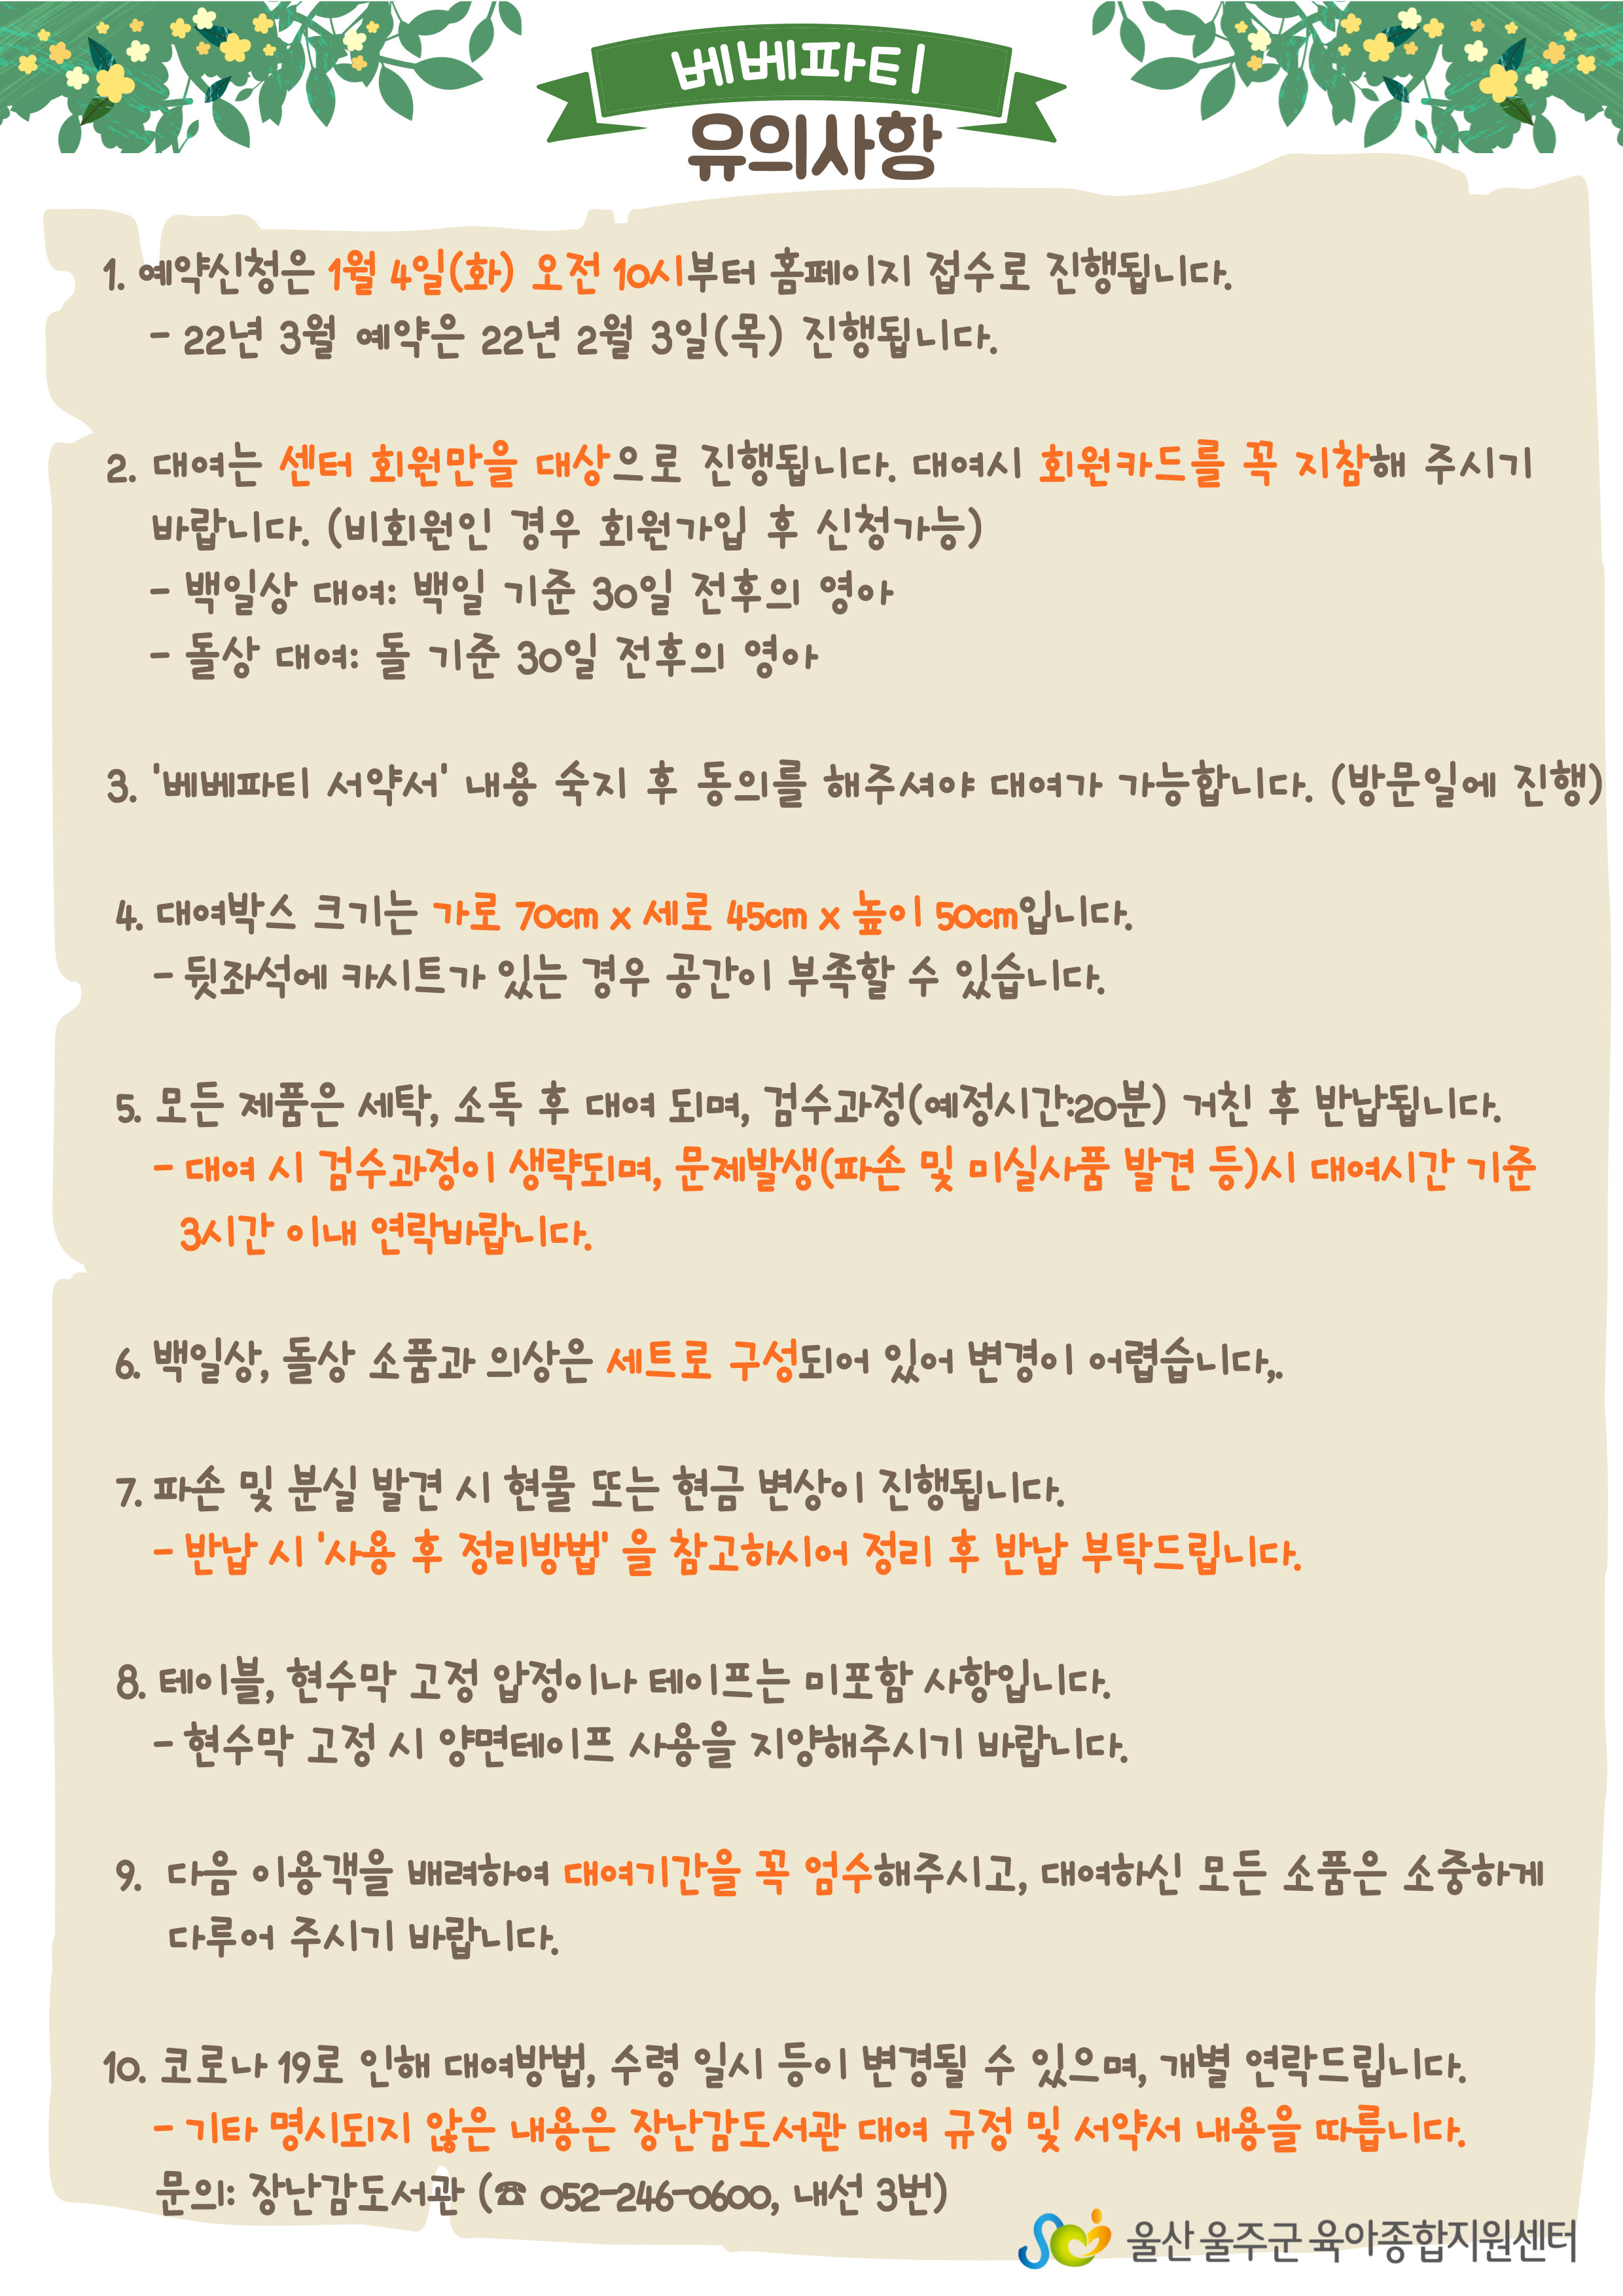 베베파티
유의사항
1. 예약신청은 1월 4일(화) 오전 10시부터 홈페이지 접수로 진행됩니다.
- 22년 3월 예약은 22년 2월 3일(목) 진행됩니다.
2. 대여는 센터 회원만을 대상으로 진행됩니다. 대여시 회원카드를 꼭 지참해 주시기
바랍니다. (비회원인 경우 회원가입 후 신청가능)
- 백일상 대여: 백일 기준 30일 전후의 영아
- 돌상 대여: 돌 기준 30일 전후의 영아
3. '베베파티 서약서' 내용 숙지 후 동의를 해주셔야 대여가 가능합니다. (방문일에 진행)
4. 대여박스 크기는 가로 70cm x 세로 45cm x 높이 50cm입니다.
- 뒷좌석에 카시트가 있는 경우 공간이 부족할 수 있습니다.
5. 모든 제품은 세탁, 소독 후 대여 되며, 검수과정(예정시간:20분) 거친 후 반납됩니다.
- 대여 시 검수과정이 생략되며, 문제발생(파손 및 미실사품 발견 등)시 대여시간 기준
3시간 이내 연락바랍니다.
6. 백일상, 돌상 소품과 의상은 세트로 구성되어 있어 변경이 어렵습니다,.
7. 파손 및 분실 발견 시 현물 또는 현금 변상이 진행됩니다.
- 반납 시 '사용 후 정리방법' 을 참고하시어 정리 후 반납 부탁드립니다.
8. 테이블, 현수막 고정 압정이나 테이프는 미포함 사항입니다.
- 현수막 고정 시 양면테이프 사용을 지양해주시기 바랍니다.
9. 다음 이용객을 배려하여 대여기간을 꼭 엄수해주시고, 대여하신 모든 소품은 소중하게
다루어 주시기 바랍니다.
10. 코로나 19로 인해 대여방법, 수령 일시 등이 변경될 수 있으며, 개별 연락드립니다.
- 기타 명시되지 않은 내용은 장난감도서관 대여 규정 및 서약서 내용을 따릅니다.
문의: 장난감도서관 (☎ 052-246-0600, 내선 3번)
울산 울주군 육아종합지원센터